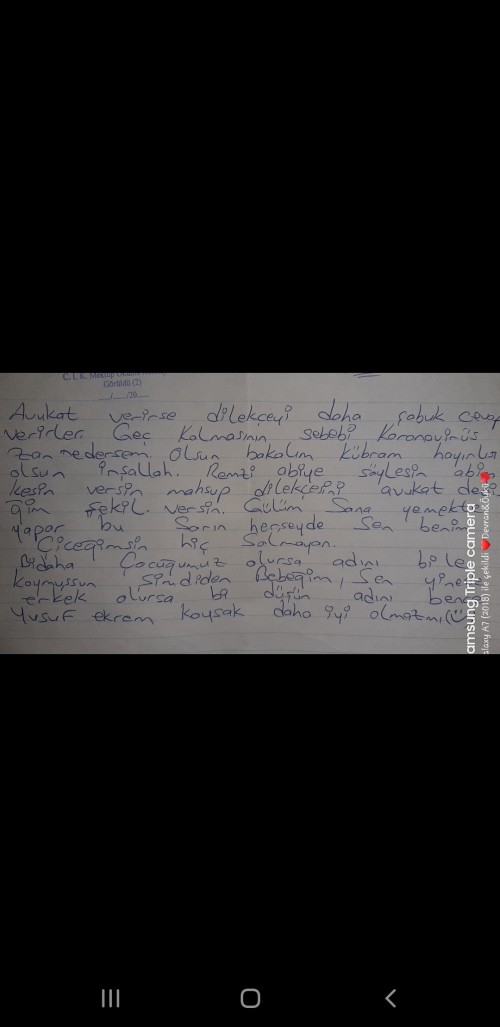 C.İ.K. Mektup Okuma
Görüldü (2)
/ /20
Avukat verirse dilekçeyi daha çabuk cevap
verirler. Geç kalmasının sebebi Koronavirüs
zan nedersem. Olsun bakalım kübram hayırlısı
olsun inşallah. Remzi abiye söylesin abin
kesin versin mahsup dilekçesini avukat dedi
ğim şekil. versin. Gülüm Sana yemekte
yapar bu Sarın herşeyde Sen benim
Çiçeğimsin hiç Solmayan.
Bidaha Çocuğumuz olursa adını bile
koymuşsun Simdiden Bebeğim, Sen yinede
erkek olursa bi düşün adını bence
Yusuf ekrem koysak daha iyi olmazmı
amsung Triple camera
alaxy A7 (2018) ile çekildi ❤Devran&Öykü❤